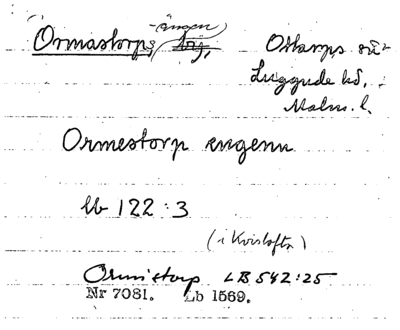 -ängen
Ormastorps,
Luggude hd.
Malm. l.
Ormestorp engenn
lb 122:3
(i Kvistofta)
Ormistorp LB 542:25
Nr 7081. Lb 1569.